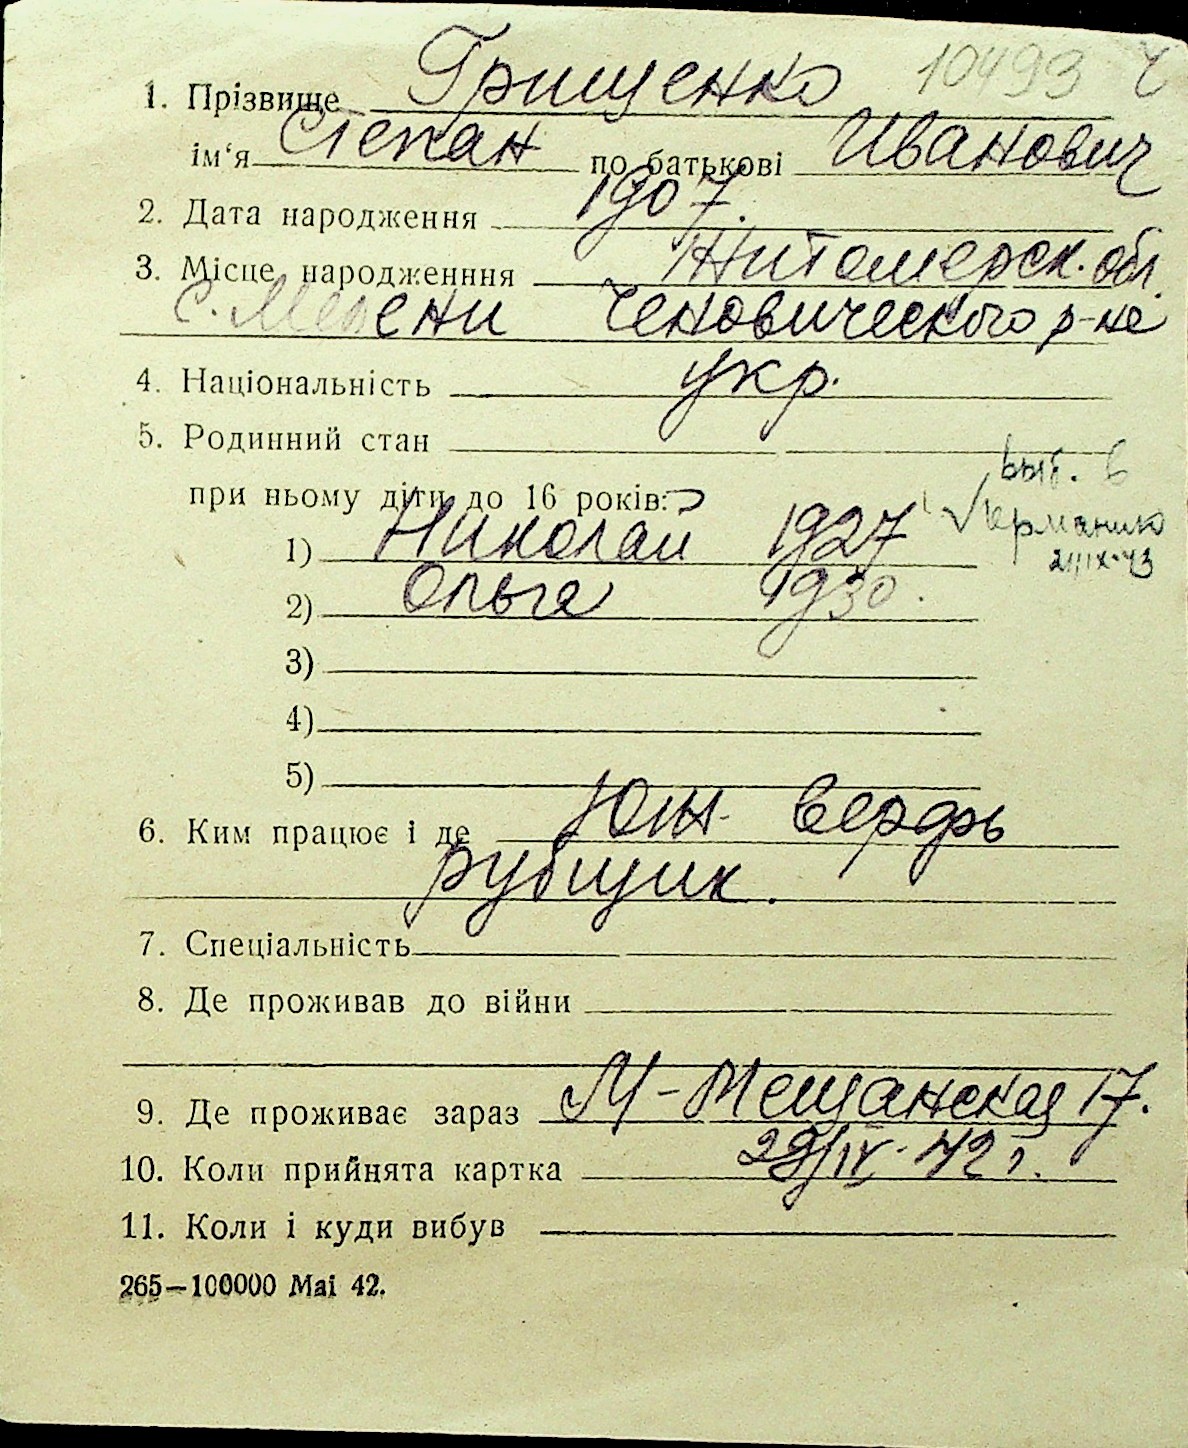 10493
1. Прізвище Грищенко
ім‘я Степан по батькові Иванович
2. Дата народження 1907.
3. Місце народженння Житомерск. обл.
с. Чеповического р-на
4. Національність укр.
5. Родинний стан
при ньому діти до 16 років:
1) Николай 1927 выб. в Германию 21/IX-43
2) Ольга 1930.
3)
4)
5)
6. Ким працює і де Юж- верфь
рубщик.
7. Спеціальність
8. Де проживав до війни
9. Де проживає зараз М-Мещанская 17.
10. Коли прийнята картка 29/IV-42 г.
11. Коли і куди вибув
265—100000 Mai 42.